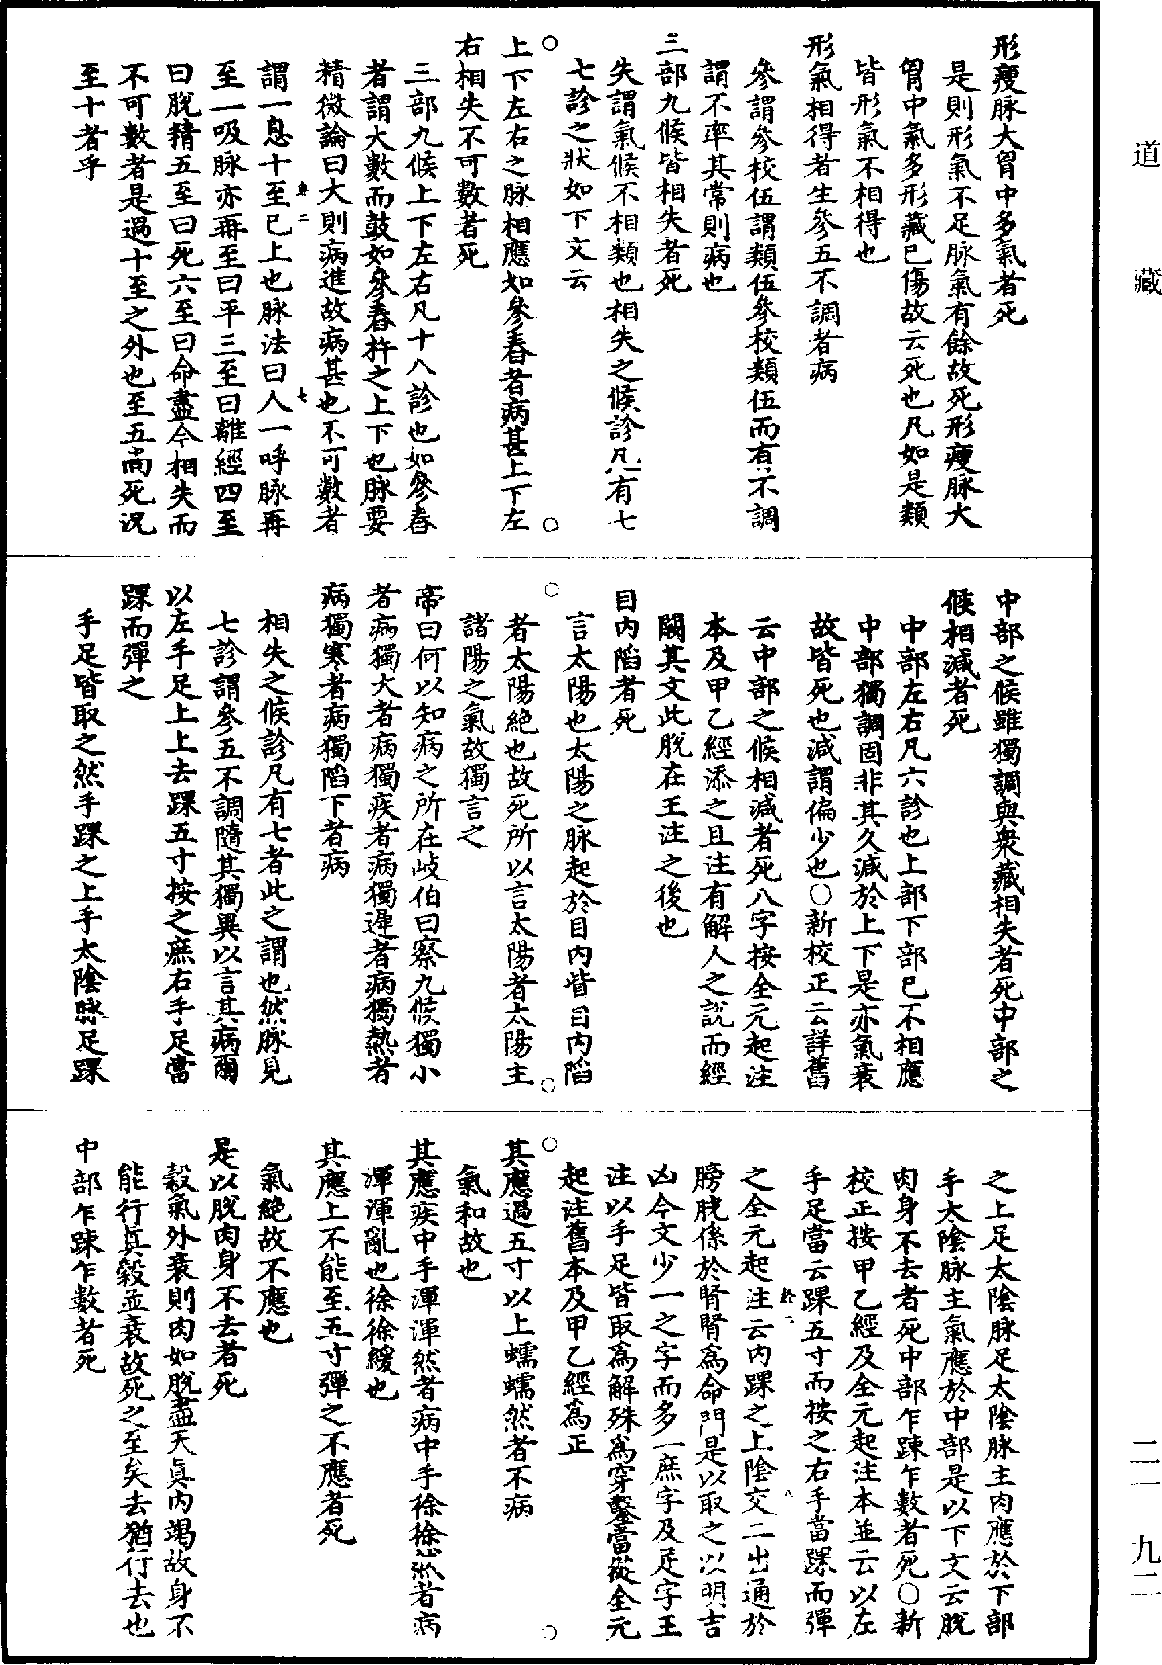 形瘦脉大胷中多氣者死
是則形氣不足脉氣有餘故死形瘦脉大
胷中氣多形藏已傷故云死也凡如是類
皆形氣不相得也
形氣相得者生參五不調者病
參謂參校伍謂類伍參校類伍而有不調
謂不率其常則病也
三部九候皆相失者死
失謂氣候不相類也相失之候診凡有七
七診之狀如下文云
上下左右之脉相應如參舂者病甚上下左
右相失不可數者死
三部九候上下左右凡十八診也如參舂
者謂大數而鼓如參舂杵之上下也脉要
精微論曰大則病進故病甚也不可數者
謂一息十至已上也脉法曰人一呼脉再
至一吸脉亦再至曰平三至曰離經四至
曰脫精五至曰死六至曰命盡今相失而
不可數者是過十至之外也至五尚死況
至十者乎
中部之候雖獨調與衆藏相失者死中部之
候相減者死
中部左右凡六診也上部下部已不相應
中部獨調固非其久減於上下是亦氣衰
故皆死也減謂偏少也○新校正云詳舊
云中部之候相減者死八字按全元起注
本及甲乙經添之且注有解人之說而經
闕其文此脫在王注之後也
目內陷者死
言太陽也太陽之脉起於目內眥目內陷
者太陽絕也故死所以言太陽者太陽主
諸陽之氣故獨言之
帝曰何以知病之所在岐伯曰察九候獨小
者病獨大者病獨疾者病獨遲者病獨熱者
病獨寒者病獨陷下者病
相失之候診凡有七者此之謂也然脉見
七診謂參五不調隨其獨異以言其病爾
以左手足上上去踝五寸按之庶右手足當
踝而彈之
手足皆取之然手踝之上手太陰脉足踝
之上足太陰脉足太陰脉主肉應於下部
手太陰脉主氣應於中部是以下文云脫
肉身不去者死中部乍踈乍數者死○新
校正按甲乙經及全元起注本並云以左
手足當云踝五寸而按之右手當踝而彈
之全元起注云內踝之上陰交二出通於
膀胱係於腎腎爲命門是以取之以明吉
凶今文少一之字而多一庶字及足字王
注以手足皆取爲解殊爲穿鑿當從全元
起注舊本及甲乙經爲正
其應過五寸以上蠕蠕然者不病
氣和故也
其應疾中手渾渾然者病中手徐徐然者病
渾渾亂也徐徐緩也
其應上不能至五寸彈之不應者死
氣絕故不應也
是以脫肉身不去者死
穀氣外衰則肉如脫盡天真內竭故身不
能行真穀並衰故死之至矣去猶行去也
中部乍踈乍數者死
道藏
二一 九二